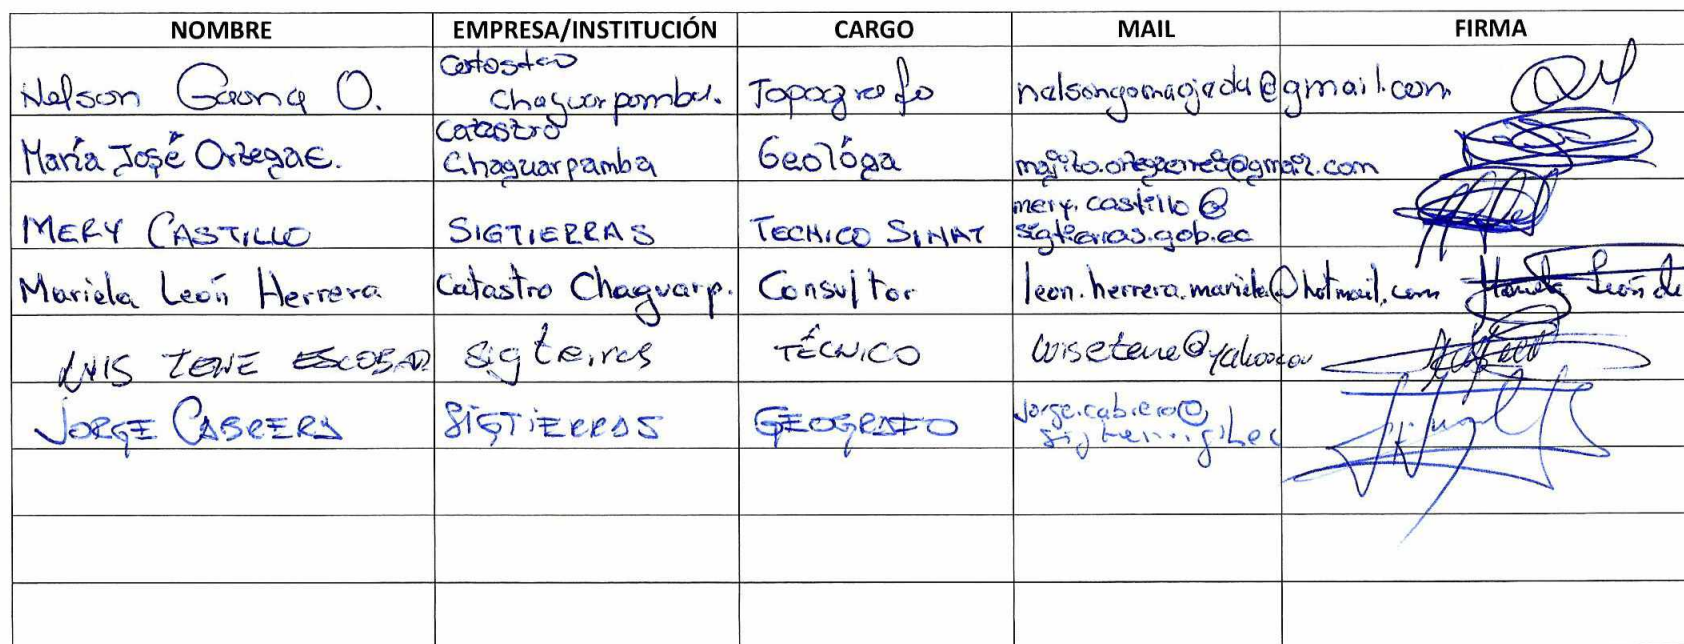 NOMBRE EMPRESA/INSTITUCIÓN CARGO MAIL FIRMA
Nelson Gaona O. Catastro Chaguarpamba. Topografo nelsongaonaojeda@gmail.com
María José Ortega E. Catastro Chaguarpamba Geológa
MERY CASTILLO SIGTIERRAS TECNICO SINAT mery.castillo@
sigtierras.gob.ec
Mariela León Herrera Catastro Chaguarp. Consultor leon.herrera.mariela@hotmail.com
LUIS TENE ESCOBAR Sigtierras TÉCNICO
JORGE CABRERA SIGTIERRAS GEOGRAFO jorge.cabrera@